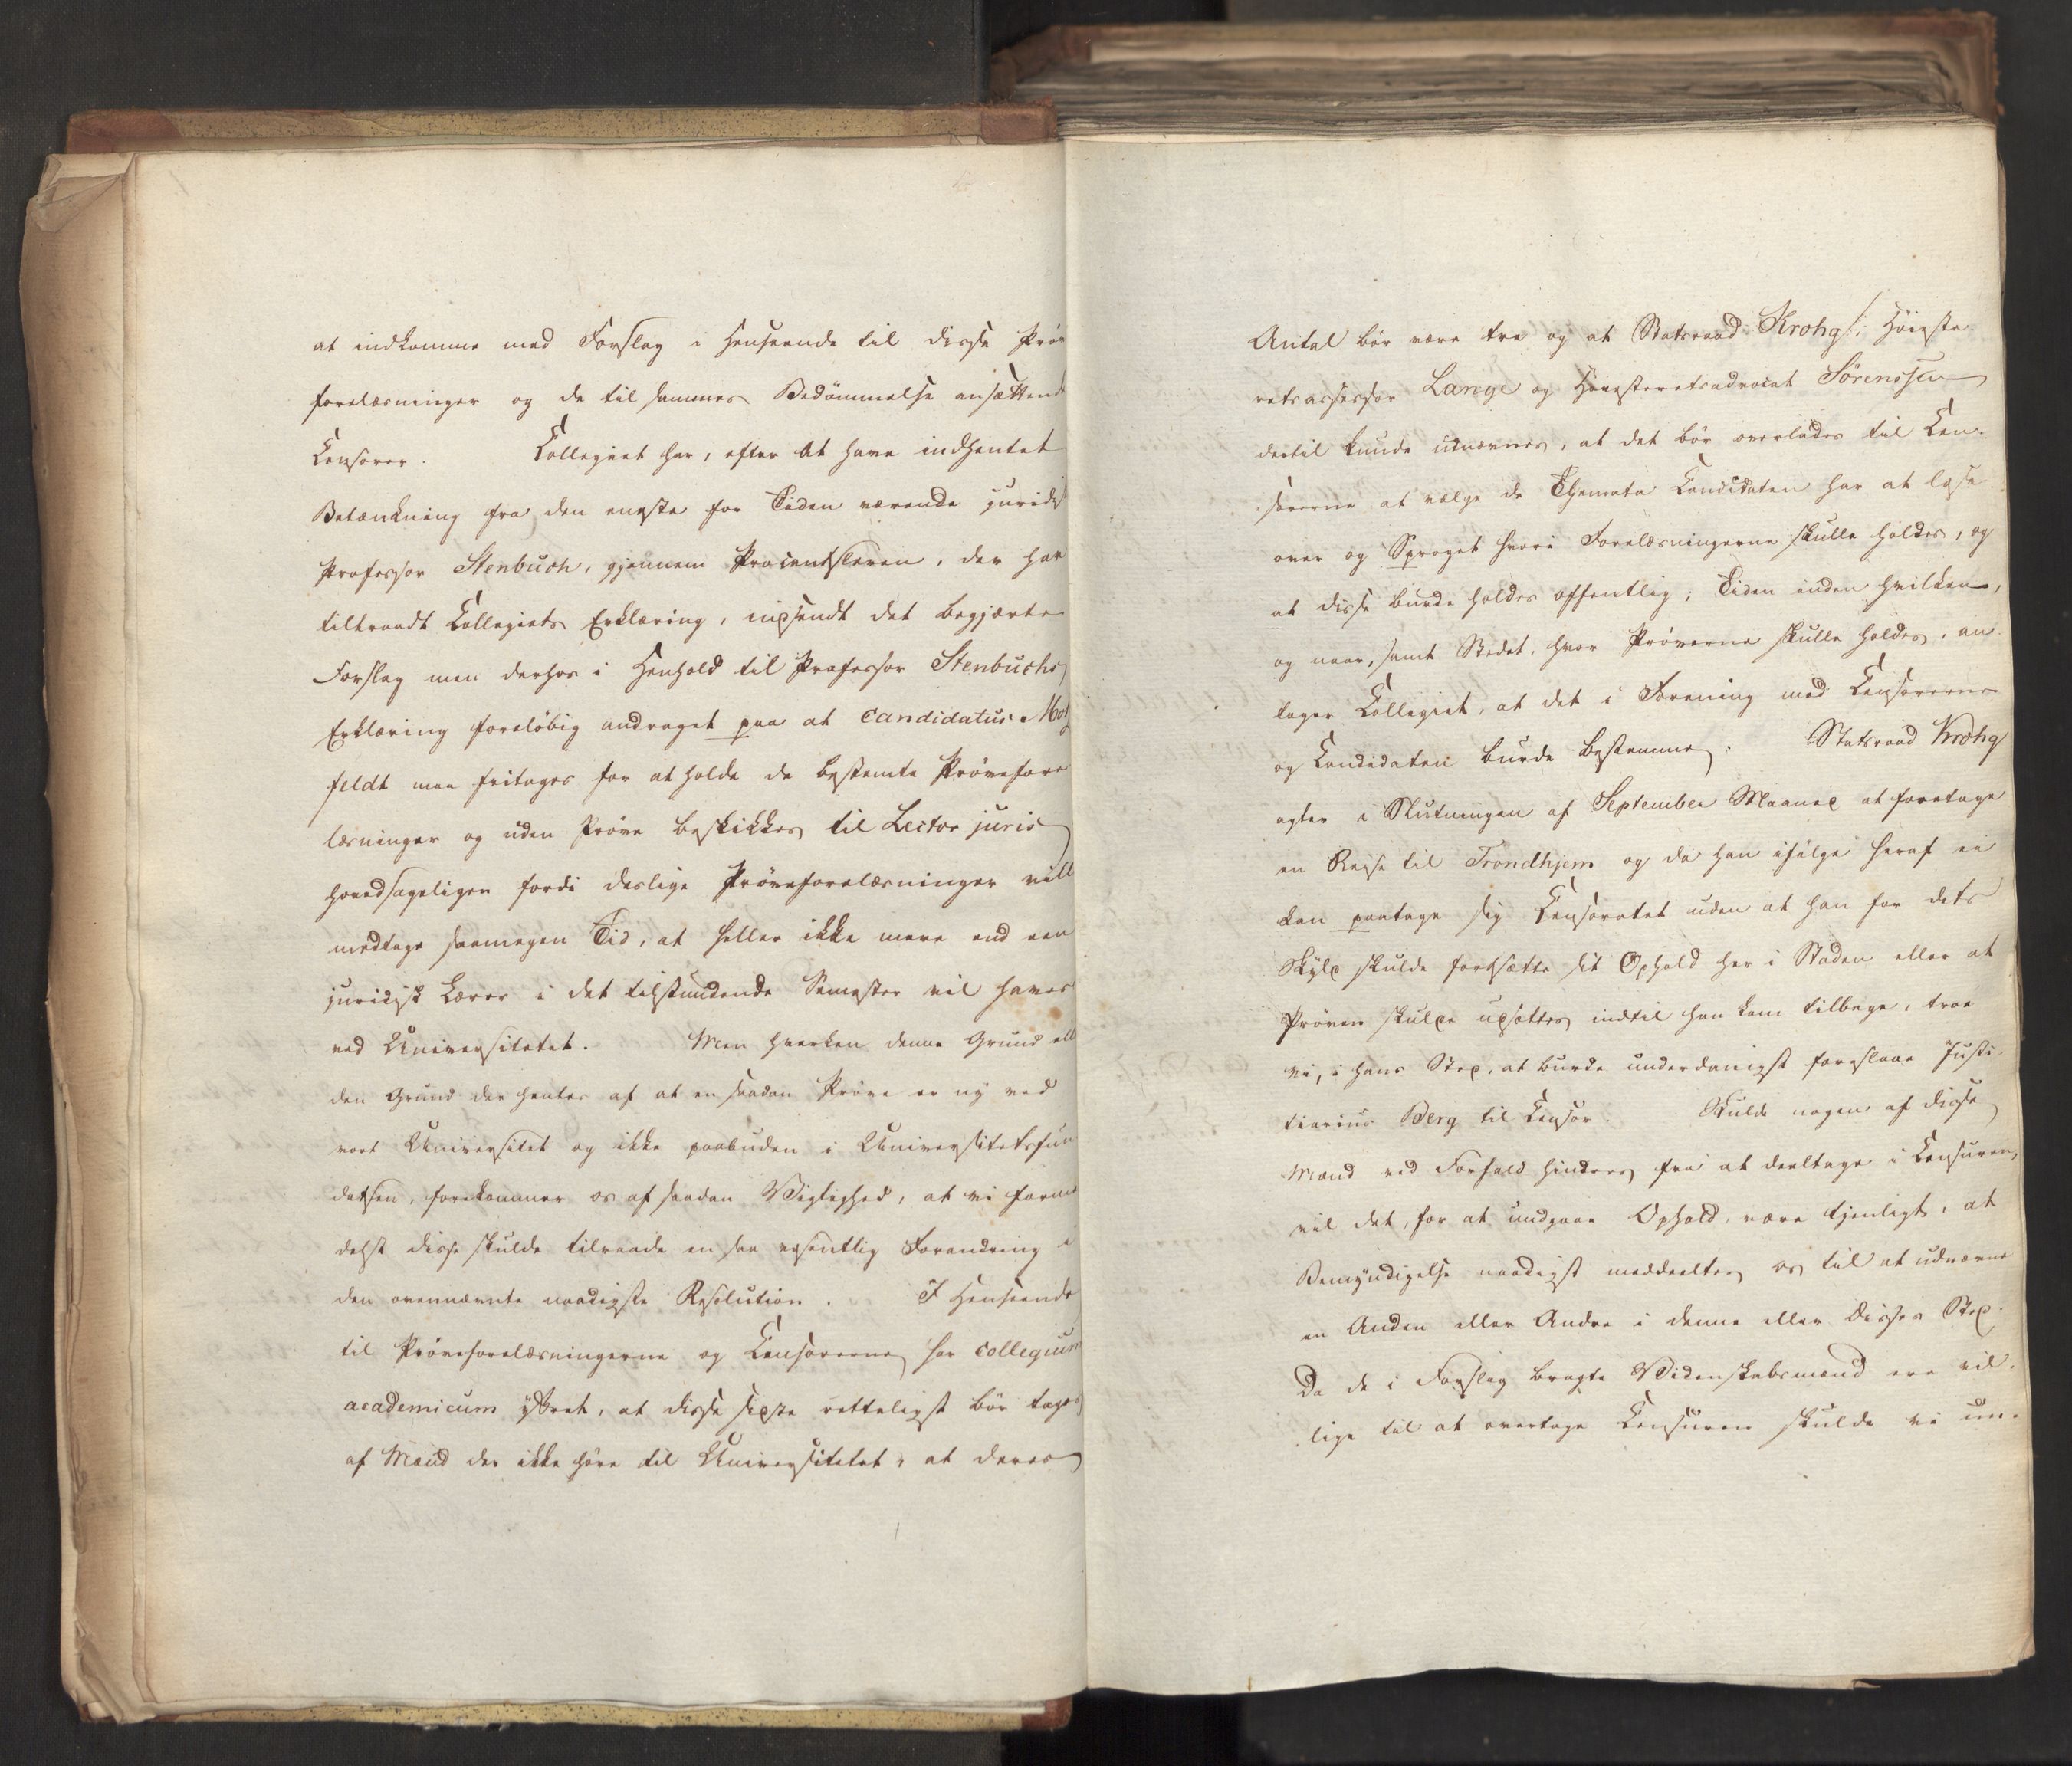 at indkomme med Forslag i Henseende til disse Prøv
forelæsninger og de til sammes Bedömmelse ansættende
Censorer. Collegiet har, efter at have indhentet
Betænkning fra den eneste for Tiden værende juridis
Professor Stenbuch, gjennem Procantsleren, der har
tiltraadt Collegiets Erklæring, indsendt det begjærte
Forslag men derhos i Henhold til Professor Stenbuchs
Erklæring foreløbig andraget paa at Candidatus Motz
feldt maa fritages for at holde de bestemte Prøvefore
læsninger og uden Prøve beskikkes til Lector juris
hovedsageligen fordi deslige Prøveforelæsninger vill
medtage saamegen Tid, at heller ikke mere end een
juridisk Lærer i det tilstundende Semester vil haves
ved Universitetet. Men hverken denne Grund ell
den Grund der hentes af at en saadan Prøve er ny ved
vort Universitet og ikke paabuden i Universitetsfun
datsen, forekommer os af saadan Vigtighed, at vi forme
delst disse skulde tilraade en saa væsentlig Forandring i
den ovennævnte naadigste Resolution. I Henseende
til Prøveforelæsningerne og Censorerne har collegium
academicum yttret, at disse sidste retteligst bör tages
af Mænd der ikke høre til Universitetet, at deres
Antal bör være tre og at Statsraad Krohg, Höieste
retsassessor Lange og Höiesteretsadvocat Sörenssen
dertil kunde udnævnes, at det bör overlades til Cen-
sorerne at vælge de Themata Candidaten har at læse
over og Sproget hvori Forelæsningerne skulle holdes, og
at disse burde holdes offentlig; Tiden inden hvilken,
og naar, samt Stedet, hvor Prøverne skulle holdes, an
tager Collegiet, at det i Forening med Censorerne
og Candidaten burde bestemme. Statsraad Krohg
agter i Slutningen af September Maaned at foretage
en Reise til Trondhjem og da han ifølge heraf ei
kan paatage sig Censoratet uden at han for dets
Skyld skulde fortsætte sit Ophold her i Staden eller at
Prøven skulde udsættes indtil han kom tilbage, troe
vi, i hans Sted, at burde underdanigst foreslaae Justi-
tiarius Berg til Censor. Skulde nogen af disse
Mænd ved Forfald hindres fra at deeltage i Censuren,
vil det, for at undgaae Ophold, være tjenligt, at
Bemyndigelse naadigst meddeeltes os til at udnævne
en Anden eller Andre i dennes eller disses Sted.
Da de i Forslag bragte Videnskabsmænd ere vil-
lige til at overtage Censuren skulde vi un-